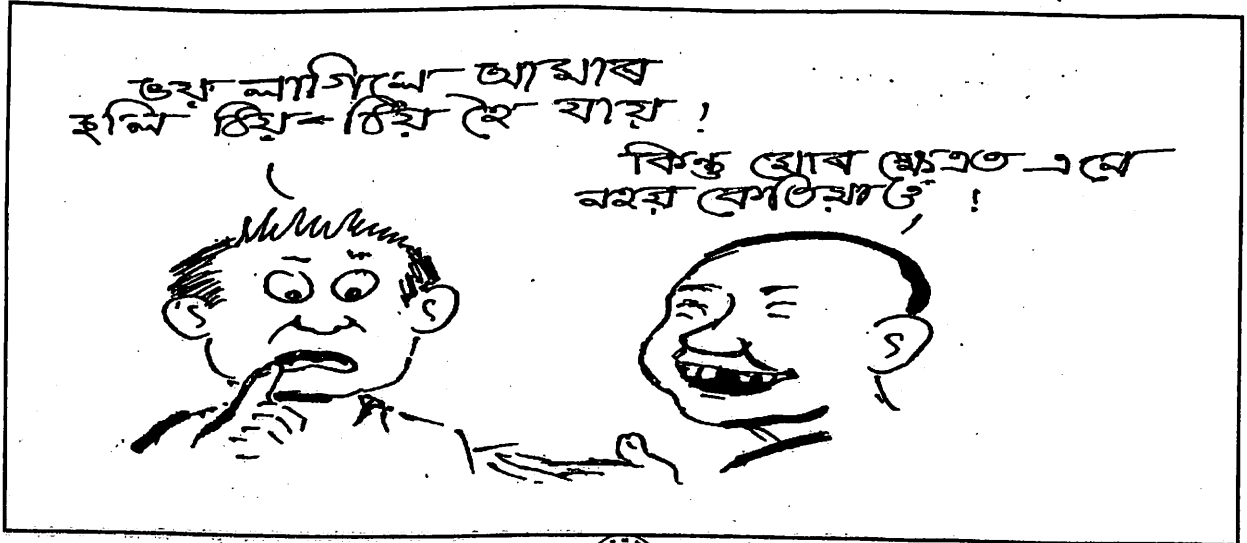 ভয় লাগিলে আমাৰ
চুলি ঠিয়-ঠিয় হৈ যায় !
কিন্তু মোৰ ক্ষেত্ৰত এনে
নহয় কেতিয়াও !